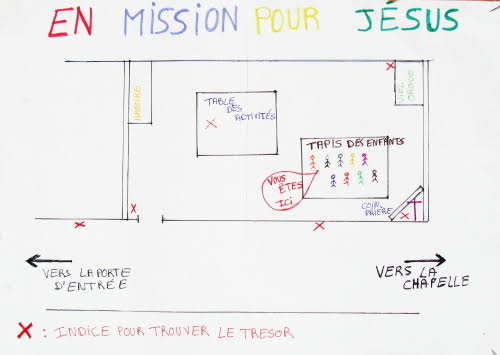 EN MISSION POUR JÉSUS
ARMOIRE
TABLE
DES
ACTIVITÉS
VIEL
ORGUE
TAPIS DES ENFANTS
VOUS
ÊTES
ICI
COIN
PRIÈRE
VERS LA PORTE
D'ENTRÉE
VERS LA
CHAPELLE
X : INDICE POUR TROUVER LE TRESOR